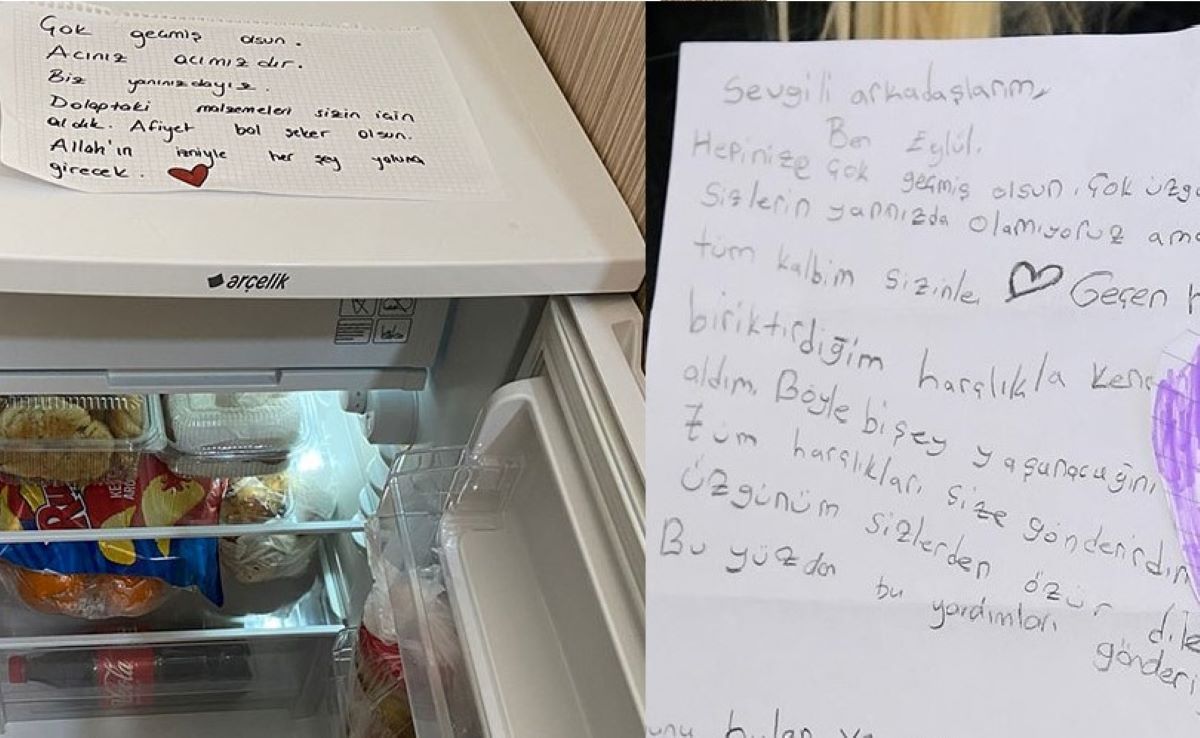 Çok geçmiş olsun.
Acınız acımızdır.
Biz yanınızdayız.
Dolaptaki malzemeleri sizin için
aldık. Afiyet bal şeker olsun.
Allah'ın izniyle her şey yoluna
girecek.
arçelik
Coca-Cola
Sevgili arkadaşlarım,
Ben Eylül.
Hepinize çok geçmiş olsun. Çok üzgü
Sizlerin yanınızda olamıyoruz ama
tüm kalbim sizinle Geçen
biriktirdiğim harçlıkla ken
aldım. Böyle bişey yaşanacağını
tüm harçlıkları size gönderirdim
Üzgünüm sizlerden özür dile
Bu yüzden bu yardımları
gönderi
bulan